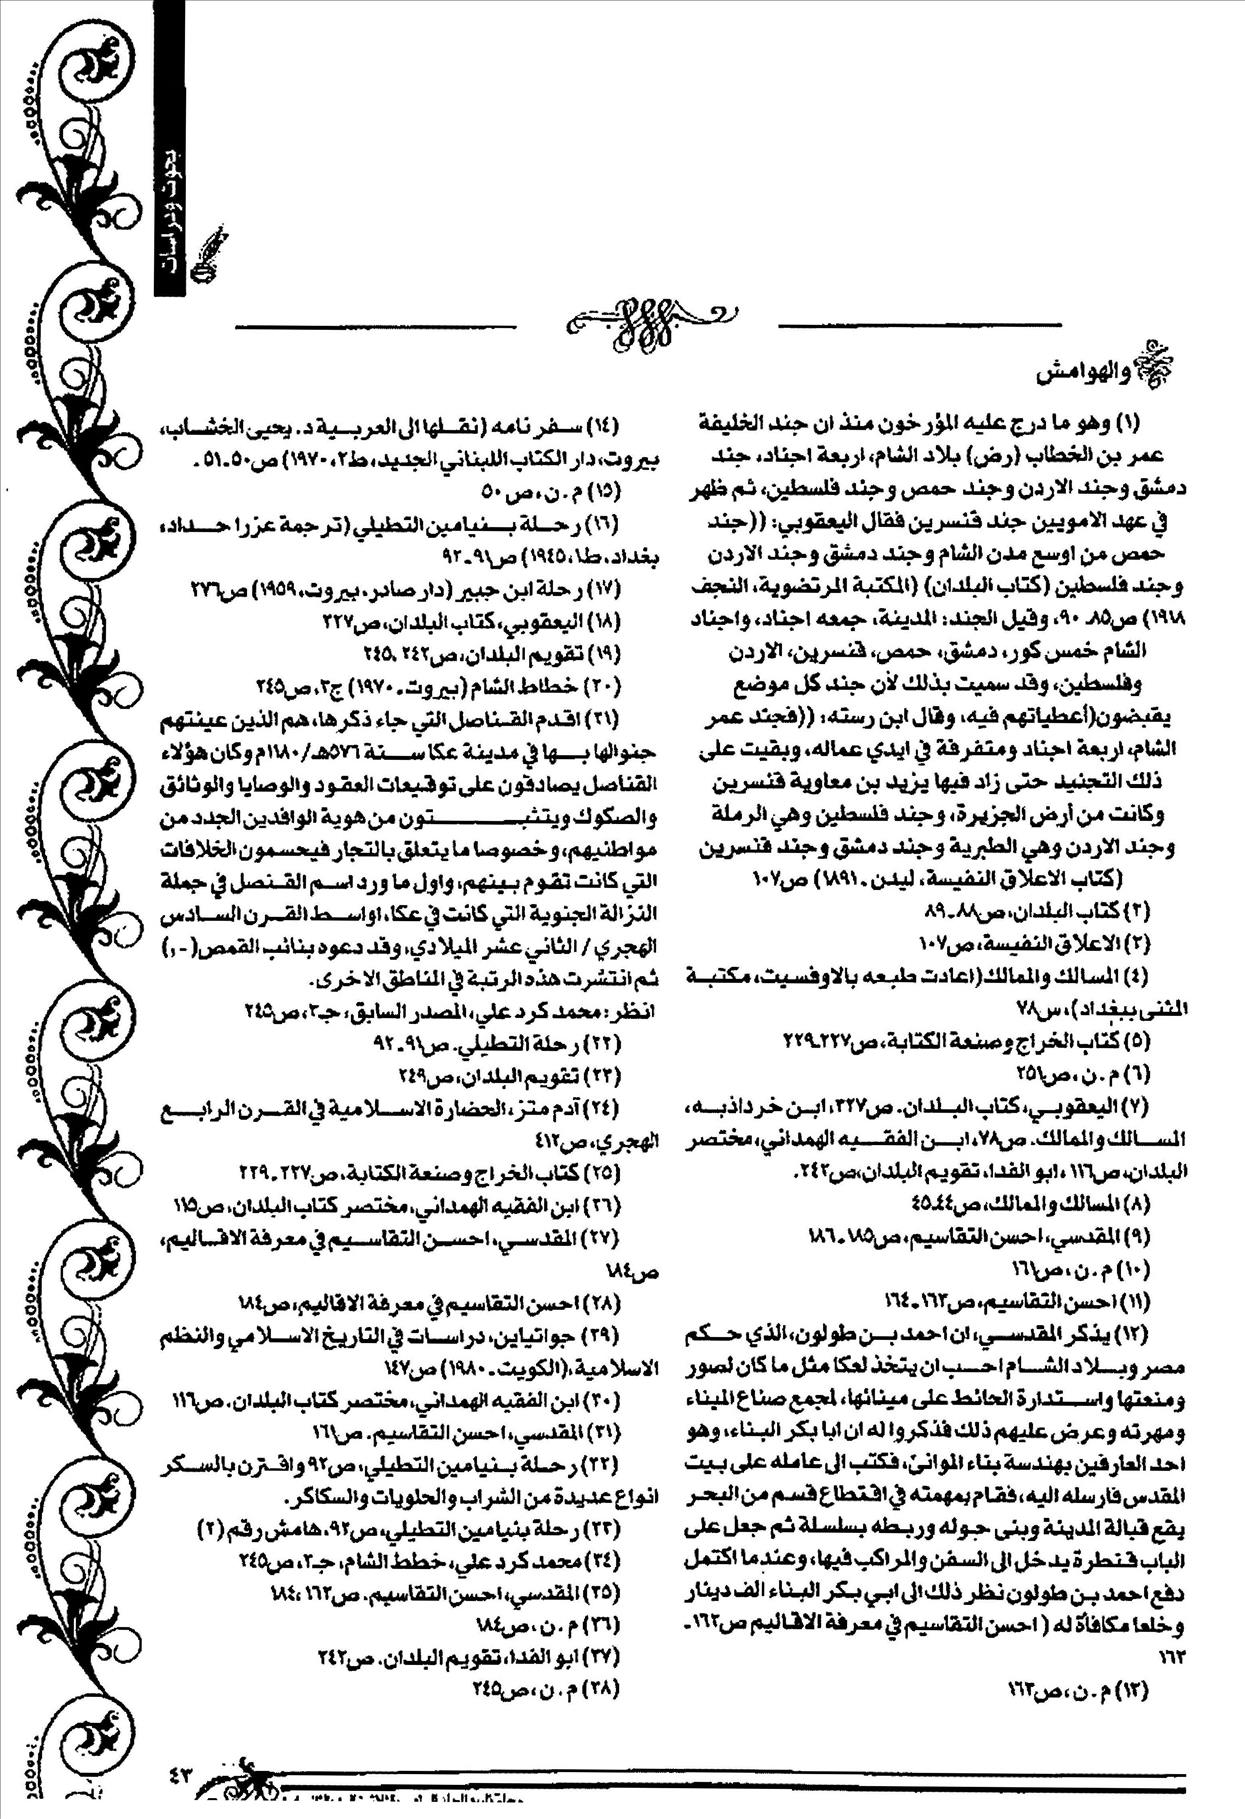 بحوث ودراسات
والهوامش
(١) وهو ما درج عليه المؤرخون منذ ان جند الخليفة
عمر بن الخطاب (رض) بلاد الشام، اربعة اجناد، جند
دمشق وجند الاردن وجند حمص وجند فلسطين، ثم ظهر
في عهد الامويين جند قنسرين فقال اليعقوبي: ((جند
حمص من اوسع مدن الشام وجند دمشق وجند الاردن
وجند فلسطين (كتاب البلدان) (المكتبة المرتضوية، النجف
١٩١٨) ص٨٥ـ٩٠، وقيل الجند: المدينة، جمعه اجناد، واجناد
الشام خمس كور، دمشق، حمص، قنسرين، الاردن
وفلسطين، وقد سميت بذلك لأن جند كل موضع
يقبضون(أعطياتهم فيه، وقال ابن رسته: ((فجند عمر
الشام، اربعة اجناد ومتفرقة في ايدي عماله، وبقيت على
ذلك التجنيد حتى زاد فيها يزيد بن معاوية قنسرين
وكانت من أرض الجزيرة، وجند فلسطين وهي الرملة
وجند الاردن وهي الطبرية وجند دمشق وجند قنسرين
(كتاب الاعلاق النفيسة، ليدن ـ١٨٩١) ص١٠٧
(٢) كتاب البلدان، ص٨٨ـ٨٩
(٣) الاعلاق النفيسة، ص١٠٧
(٤) المسالك والممالك(اعادت طبعه بالاوفسيت، مكتبة
المثنى ببغداد)، س٧٨
(٥) كتاب الخراج وصنعة الكتابة، ص٢٢٧ـ٢٢٩
(٦) م.ن، ص٢٥١
(٧) اليعقوبي، كتاب البلدان. ص٣٢٧، ابن خرداذبه،
المسالك والممالك. ص٧٨، ابن الفقيه الهمداني، مختصر
البلدان، ص١١٦، ابو الفدا، تقويم البلدان،ص٢٤٢.
(٨) المسالك والممالك، ص٤٤ـ٤٥
(٩) المقدسي، احسن التقاسيم، ص١٨٥ـ١٨٦
(١٠) م.ن، ص١٦١
(١١) احسن التقاسيم، ص١٦٣ـ١٦٤
(١٢) يذكر المقدسي، ان احمد بن طولون، الذي حكم
مصر وبلاد الشام احب ان يتخذ لعكا مثل ما كان لصور
ومنعتها واستدارة الحائط على مينائها، لمجمع صناع الميناء
ومهرته وعرض عليهم ذلك فذكروا له ان ابا بكر البناء، وهو
احد العارفين بهندسة بناء الموانئ، فكتب الى عامله على بيت
المقدس فارسله اليه، فقام بمهمته في اقتطاع قسم من البحر
يقع قبالة المدينة وبنى حوله وربطه بسلسلة ثم جعل على
الباب قنطرة يدخل الى السفن والمراكب فيها، وعندما اكتمل
دفع احمد بن طولون نظر ذلك الى ابي بكر البناء الف دينار
وخلعا مكافأة له ( احسن التقاسيم في معرفة الاقاليم ص١٦٢ـ
١٦٣
(١٣) م.ن، ص١٦٣
(١٤) سفر نامه (نقلها الى العربية د. يحيى الخشاب،
بيروت، دار الكتاب اللبناني الجديد، ط٢، ١٩٧٠) ص٥٠ـ٥١.
(١٥) م.ن، ص٥٠
(١٦) رحلة بنيامين التطيلي (ترجمة عزرا حداد،
بغداد، ط١، ١٩٤٥) ص٩١ـ٩٢
(١٧) رحلة ابن جبير (دار صادر، بيروت، ١٩٥٩) ص٢٧٦
(١٨) اليعقوبي، كتاب البلدان، ص٣٢٧
(١٩) تقويم البلدان، ص٢٤٢، ٢٤٥
(٢٠) خطاط الشام (بيروت ـ١٩٧٠) ج٢، ص٢٤٥
(٢١) اقدم القناصل التي جاء ذكرها، هم الذين عينتهم
جنوالها بها في مدينة عكا سنة ٥٧٦هـ/١١٨٠م وكان هؤلاء
القناصل يصادقون على توقيعات العقود والوصايا والوثائق
والصكوك ويتثبتون من هوية الوافدين الجدد من
مواطنيهم، وخصوصا ما يتعلق بالتجار فيحسمون الخلافات
التي كانت تقوم بينهم، واول ما ورد اسم القنصل في جملة
النزالة الجنوية التي كانت في عكا، اواسط القرن السادس
الهجري / الثاني عشر الميلادي، وقد دعوه بنائب القمص(-,)
ثم انتشرت هذه الرتبة في المناطق الاخرى.
انظر: محمد كرد علي، المصدر السابق، جـ٢، ص٢٤٥
(٢٢) رحلة التطيلي. ص٩١ـ٩٢
(٢٣) تقويم البلدان، ص٢٤٩
(٢٤) آدم متز، الحضارة الاسلامية في القرن الرابع
الهجري، ص٤١٢
(٢٥) كتاب الخراج وصنعة الكتابة، ص٢٢٧ـ٢٢٩
(٢٦) ابن الفقيه الهمداني، مختصر كتاب البلدان، ص١١٥
(٢٧) المقدسي، احسن التقاسيم في معرفة الاقاليم،
ص١٨٤
(٢٨) احسن التقاسيم في معرفة الاقاليم، ص١٨٤
(٢٩) جواتياين، دراسات في التاريخ الاسلامي والنظم
الاسلامية، (الكويت ـ١٩٨٠) ص١٤٧
(٣٠) ابن الفقيه الهمداني، مختصر كتاب البلدان. ص١١٦
(٣١) المقدسي، احسن التقاسيم. ص١٦١
(٣٢) رحلة بنيامين التطيلي، ص٩٢ واقترن بالسكر
انواع عديدة من الشراب والحلويات والسكاكر.
(٣٣) رحلة بنيامين التطيلي، ص٩٢، هامش رقم (٢)
(٣٤) محمد كرد علي، خطط الشام، جـ٢، ص٢٤٥
(٣٥) المقدسي، احسن التقاسيم. ص١٦٢، ١٨٤
(٣٦) م.ن، ص١٨٤
(٣٧) ابو الفدا، تقويم البلدان. ص٢٤٢
(٣٨) م.ن، ص٢٤٥
٤٣